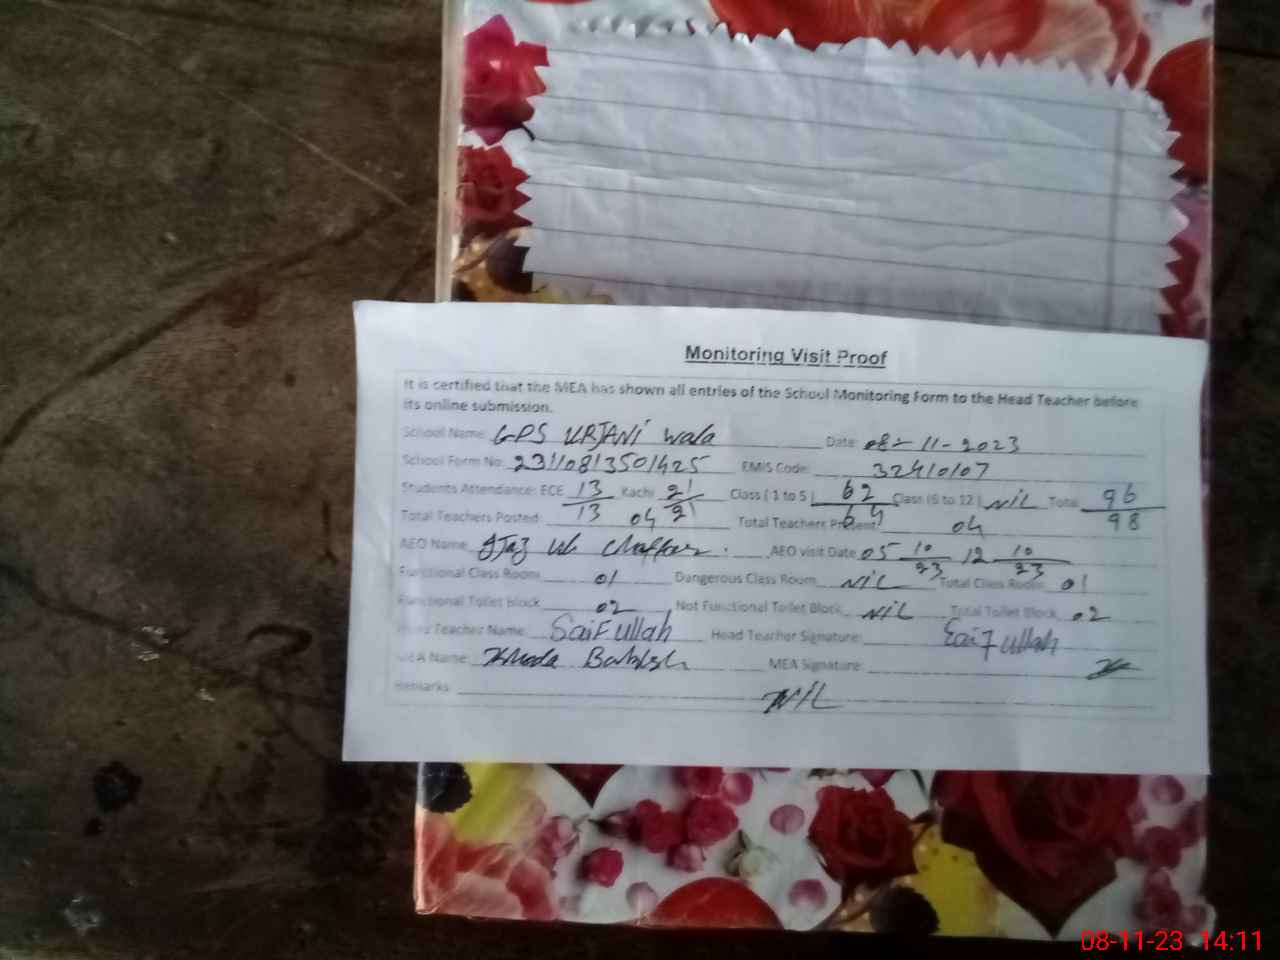 Monitoring Visit Proof
It is certified that the MEA has shown all entries of the School Monitoring Form to the Head Teacher before
its online submission.
School Name: GPS URJANI wala Date: 08-11-2023
School Form No. 23110813501425 EMIS Code: 32410107
Students Attendance: ECE 13/13 Kachi 21/21 Class (1 to 5) 62/64 Class (6 to 12) NIL Total 96/98
Total Teachers Posted: 04 Total Teachers Present: 04
AEO Name: AEO visit Date 05 10/23 12 10/23
Functional Class Room 01 Dangerous Class Room NIL Total Class Room 01
Functional Toilet Block 02 Not Functional Toilet Block NIL Total Toilet Block 02
Head Teacher Name: Saif ullah Head Teacher Signature: Saif ullah
MEA Name: Khuda Bakhsh MEA Signature:
Remarks: NIL
08-11-23 14:11